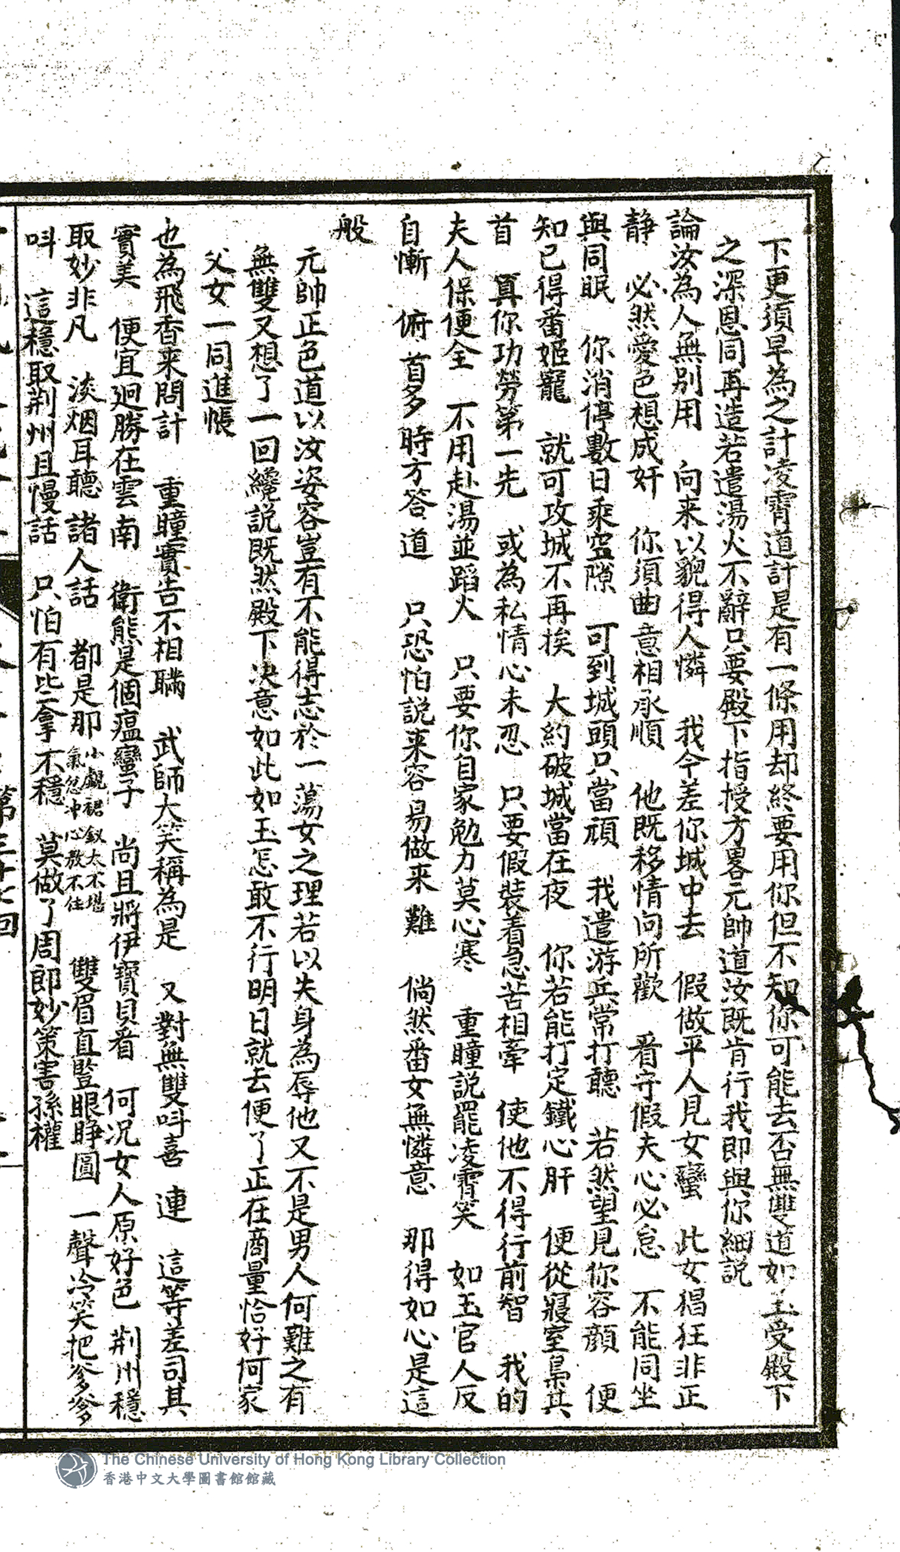 下更須早為之計凌霄道計是有一條用却終要用你但不知你可能去否無雙道如玉受殿下
之深恩同再造若遣湯火不辭只要殿下指授方畧元帥道汝既肯行我即與你細説
論汝為人無别用　向来以貌得人憐　我今差你城中去　假做平人見女蠻　此女猖狂非正
静　必然愛色想成奸　你須曲意相承順　他既移情问所歡　看守假夫心必怠　不能同坐
與同眠　你消停數日乘空隙　可到城頭只當頑　我遣游兵常打聽　若然望見你容顔　便
知已得番姬寵　就可攻城不再挨　大約破城當在夜　你若能打定鐵心肝　便從寢室梟其
首　算你功勞第一先　或為私情心未忍　只要假裝着急苦相牽　使他不得行前智　我的
夫人保便全　不用赴湯並蹈火　只要你自家勉力莫心寒　重瞳説罷凌霄笑　如玉官人反
自慚　俯首多時方答道　只恐怕説来容易做来難　倘然番女無憐意　那得如心是這
般
元帥正色道以汝姿容豈有不能得志於一蕩女之理若以失身為辱他又不是男人何難之有
無雙又想了一回纔説既然殿下决意如此如玉怎敢不行明日就去便了正在商量恰好何家
父女一同進帳
也為飛香来問計　重瞳實告不相瞞　武師大笑稱為是　又對無雙呌喜連　這等差司其
實美　便宜迥勝在雲南　衛熊是個瘟蠻子　尚且將伊寶貝看　何况女人原好色　荆州穩
取妙非凡　淡烟耳聽諸人話　都是那小覷裙釵太不堪氣忽冲心教不住　雙眉直豎眼睁圓　一聲冷笑把爹爹
呌　這穩取荆州且慢話　只怕有些拿不穩　莫做了周郎妙策害孫權
第三十七回
The Chinese University of Hong Kong Library Collection
香港中文大學圖書館館藏